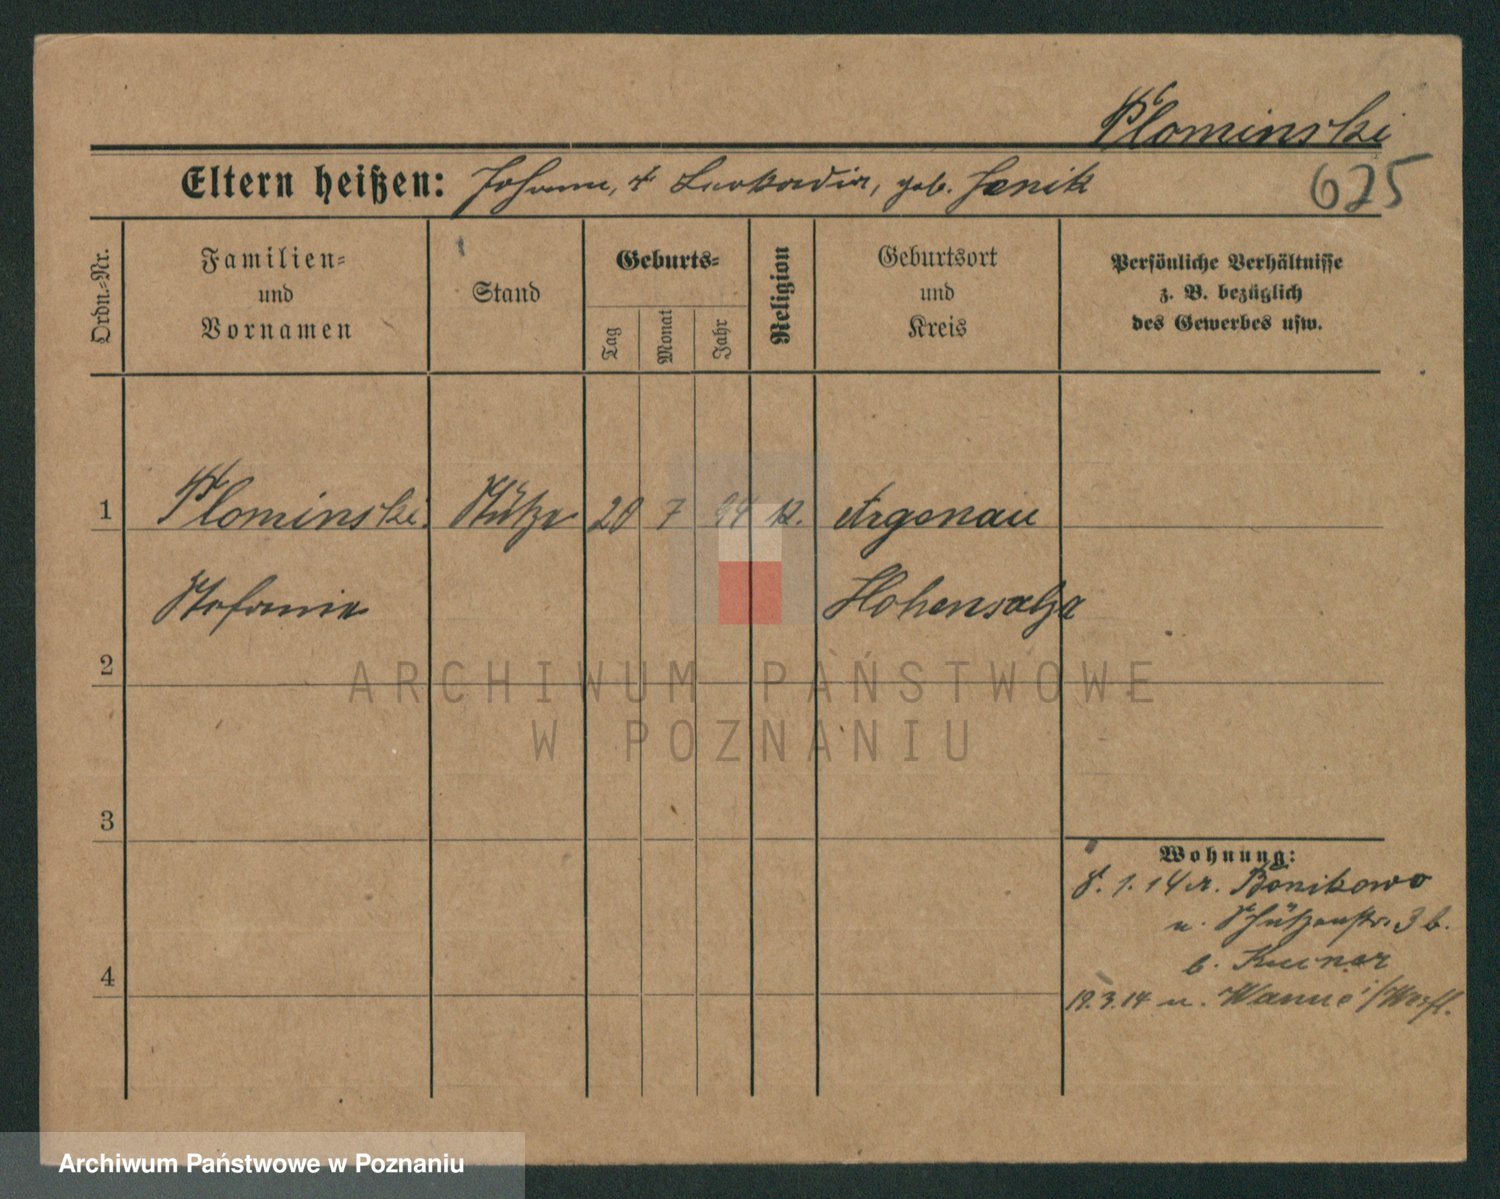 Plominski
Eltern heißen: Johann, u. Leokadia, geb. Jænik
625
Ordn.=Nr.
Familien=
und
Vornamen
Stand
Geburts=
Tag
Monat
Jahr
Religion
Geburtsort
und
Kreis
Persönliche Verhältnisse
z. B. bezüglich
des Gewerbes usw.
1 Plominski Stütze 20 7 94 k. Argenau
Stefanie Hohensalza
2
3
4
Wohnung:
8. 1. 14 v. Bonikowo
n. Schützenstr. 3 b.
b.
19.3.14 n. Wanne / Westf.
ARCHIWUM PAŃSTWOWE
W POZNANIU
Archiwum Państwowe w Poznaniu